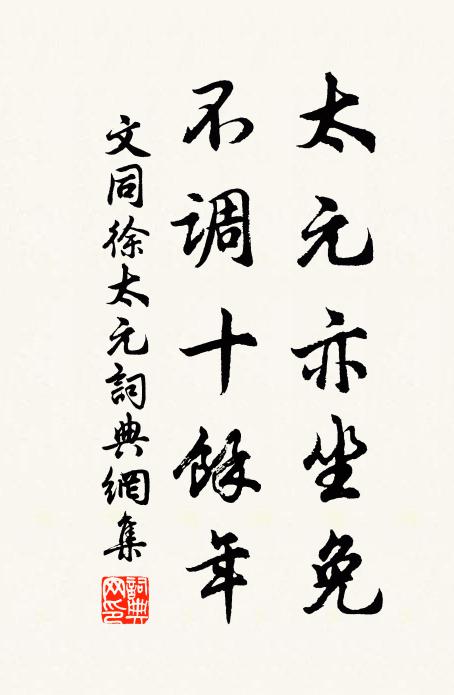 太元亦坐免
不調十餘年
文同徐太元詞典網集
詞典网印